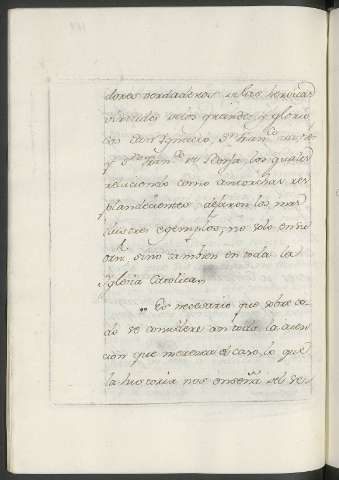 dores verdaderos en las heroicas
virtudes de los grandes, y glorio
sos San Ignacio, Sn. Franco.
y Sn. Franco. de Borja, los quales
reluciendo como antorchas res
plandecientes, dejaron los mas
ilustres egemplos, no solo en su
sino tambien en toda la
Yglesia Catolica.
Es necesario que sobre to
do se considere con toda la aten
cion que merece el caso, lo que
la historia nos enseña de